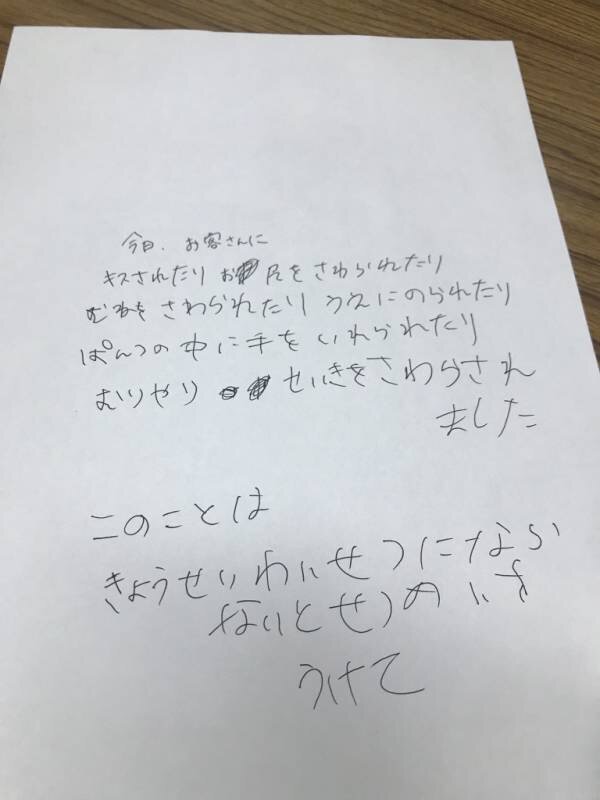 今日、お客さんに
キスされたり お尻をさわられたり
むねをさわられたり うえにのられたり
ぱんつの中に手をいれられたり
むりやり せいきをさわらされ
ました
このことは
きょうせいわいせつにならい
ないとせつめいを
うけて